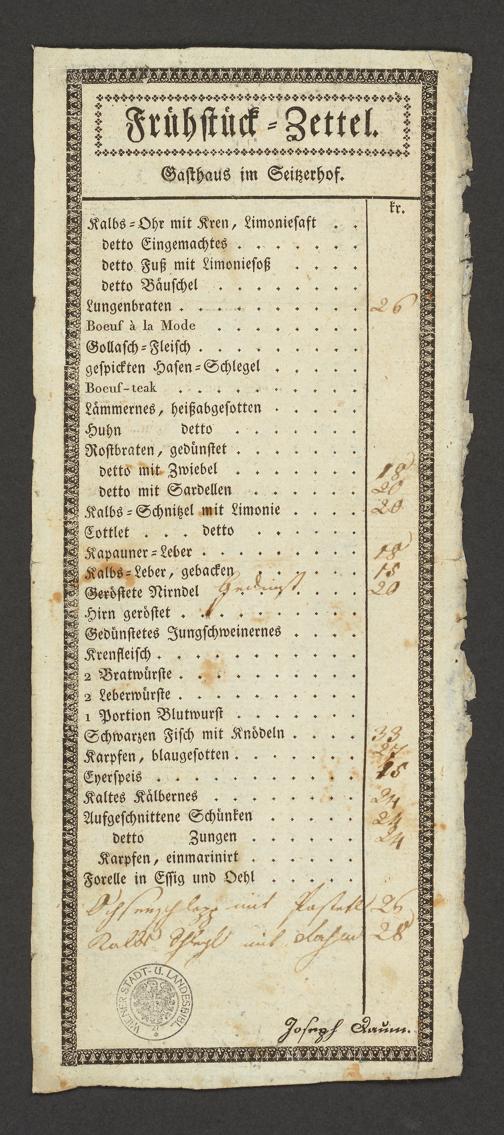 Frühstück-Zettel.
Gasthaus im Seitzerhof.
kr.
Kalbs-Ohr mit Kren, Limoniesaft . .
detto Eingemachtes . . . . . .
detto Fuß mit Limoniesoß . . . .
detto Bäuschel . . . . . . . .
Lungenbraten . . . . . . . . . 26
Boeuf à la Mode . . . . . . .
Gollasch-Fleisch . . . . . . . .
gespickten Hasen-Schlegel . . . . .
Boeuf-teak . . . . . . . . .
Lämmernes, heißabgesotten . . . . .
Huhn detto . . . . . .
Rostbraten, gedünstet . . . . . . .
detto mit Zwiebel . . . . . . 18
detto mit Sardellen . . . . . 20
Kalbs-Schnitzel mit Limonie . . . . 20
Cottlet . . . detto . . . . . .
Kapauner-Leber . . . . . . . . 18
Kalbs-Leber, gebacken . . . . . . 18
Geröstete Nirndel . . . . 20
Hirn geröstet . . . . . . . . .
Gedünstetes Jungschweinernes . . . .
Krenfleisch . . . . . . . . . .
2 Bratwürste . . . . . . . . .
2 Leberwürste . . . . . . . . .
1 Portion Blutwurst . . . . . . .
Schwarzen Fisch mit Knödeln . . . . 33
Karpfen, blaugesotten . . . . . .
Eyerspeis . . . . . . . . . . 18
Kaltes Kälbernes . . . . . . . . 24
Aufgeschnittene Schünken . . . . . 24
detto Zungen . . . . . 24
Karpfen, einmarinirt . . . . . .
Forelle in Essig und Oehl . . . . .
mit 26
Kalbs Schlegl mit 28
WIENER STADT- U. LANDESBIBL.
Joseph Daum.